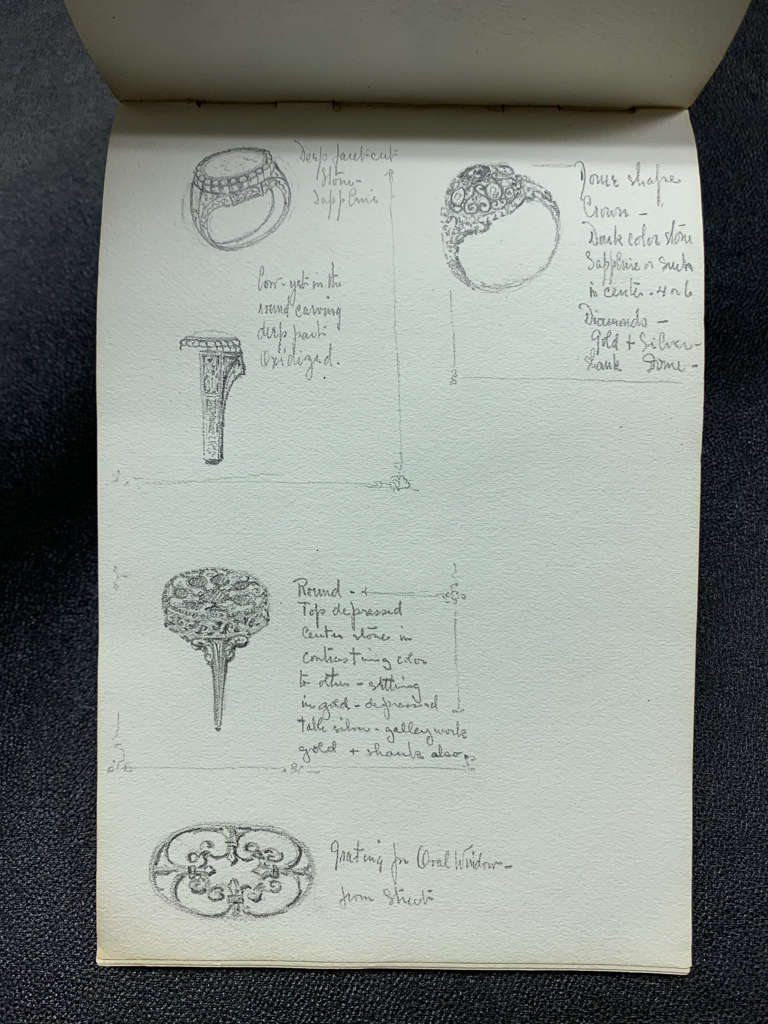 Deep facet cut
Stone -
Sapphire
Low - yet in the
round carving
deep part
Oxidized.
Dome shape
Crown -
Dark color stone
Sapphire or
in center - 4 or 6
Diamonds -
Gold + Silver -
Shank Dome -
Round -
Top depressed
Center stones in
contrasting color
to others - setting
in gold - depressed
table silver - gallery work
gold + shank also
Grating for Oval Window -
from Street